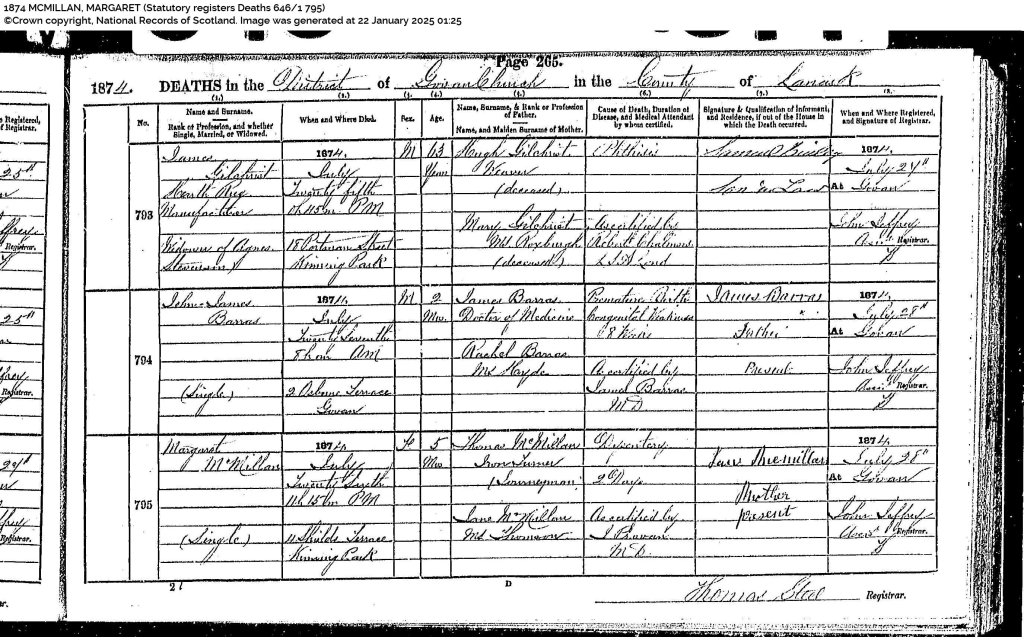 1874 MCMILLAN, MARGARET (Statutory registers Deaths 646/1 795)
©Crown copyright, National Records of Scotland. Image was generated at 22 January 2025 01:25
Page 265.
1874. DEATHS in the District of Govan Church in the County of Lanark
No.
(1.)
Name and Surname.
Rank or Profession, and whether
Single, Married, or Widowed.
(2.)
When and Where Died.
(3.)
Sex.
(4.)
Age.
(5.)
Name, Surname, & Rank or Profession
of Father.
Name, and Maiden Surname of Mother.
(6.)
Cause of Death, Duration of
Disease, and Medical Attendant
by whom certified.
(7.)
Signature & Qualification of Informant,
and Residence, if out of the House in
which the Death occurred.
(8.)
When and Where Registered,
and Signature of Registrar.
793
James
Gilchrist
Hearth Rug
Manufacturer
Widower of Agnes
Stevenson
1874.
July
Twenty fifth
0h 45m PM
18 Portman Street
Kinning Park
M
63
Years
Hugh Gilchrist
Weaver
(deceased)
Mary Gilchrist
MS Roxburgh
(deceased)
Phthisis
As certified by
Robert Chalmers
Samuel
Son in Law
1874.
July 27th
At Govan
John Jeffrey
Asst. Registrar.
794
John James
Barras
(Single)
1874.
July
Twenty Seventh
8h 0m AM
2 Osborne Terrace
Govan
M
2
Mos.
James Barras
Doctor of Medicine
Rachel Barras
MS Hyde
Premature Birth
Congenital Weakness
8 Weeks
As certified by
James Barras
MD
James Barras
Father
Present
1874.
July 28th
At Govan
John Jeffrey
Asst. Registrar.
795
Margaret
McMillan
(Single)
1874.
July
Twenty Sixth
11h 15m PM
11 Shields Terrace
Kinning Park
F
5
Mos
Thomas McMillan
Iron Turner
(Journeyman)
Jane McMillan
MS Thomson
Dysentery
2 Days
As certified by
MD.
Jane McMillan
Mother
present
1874.
July 28th
At Govan
John Jeffrey
Asst. Registrar.
D
Thomas Steel Registrar.